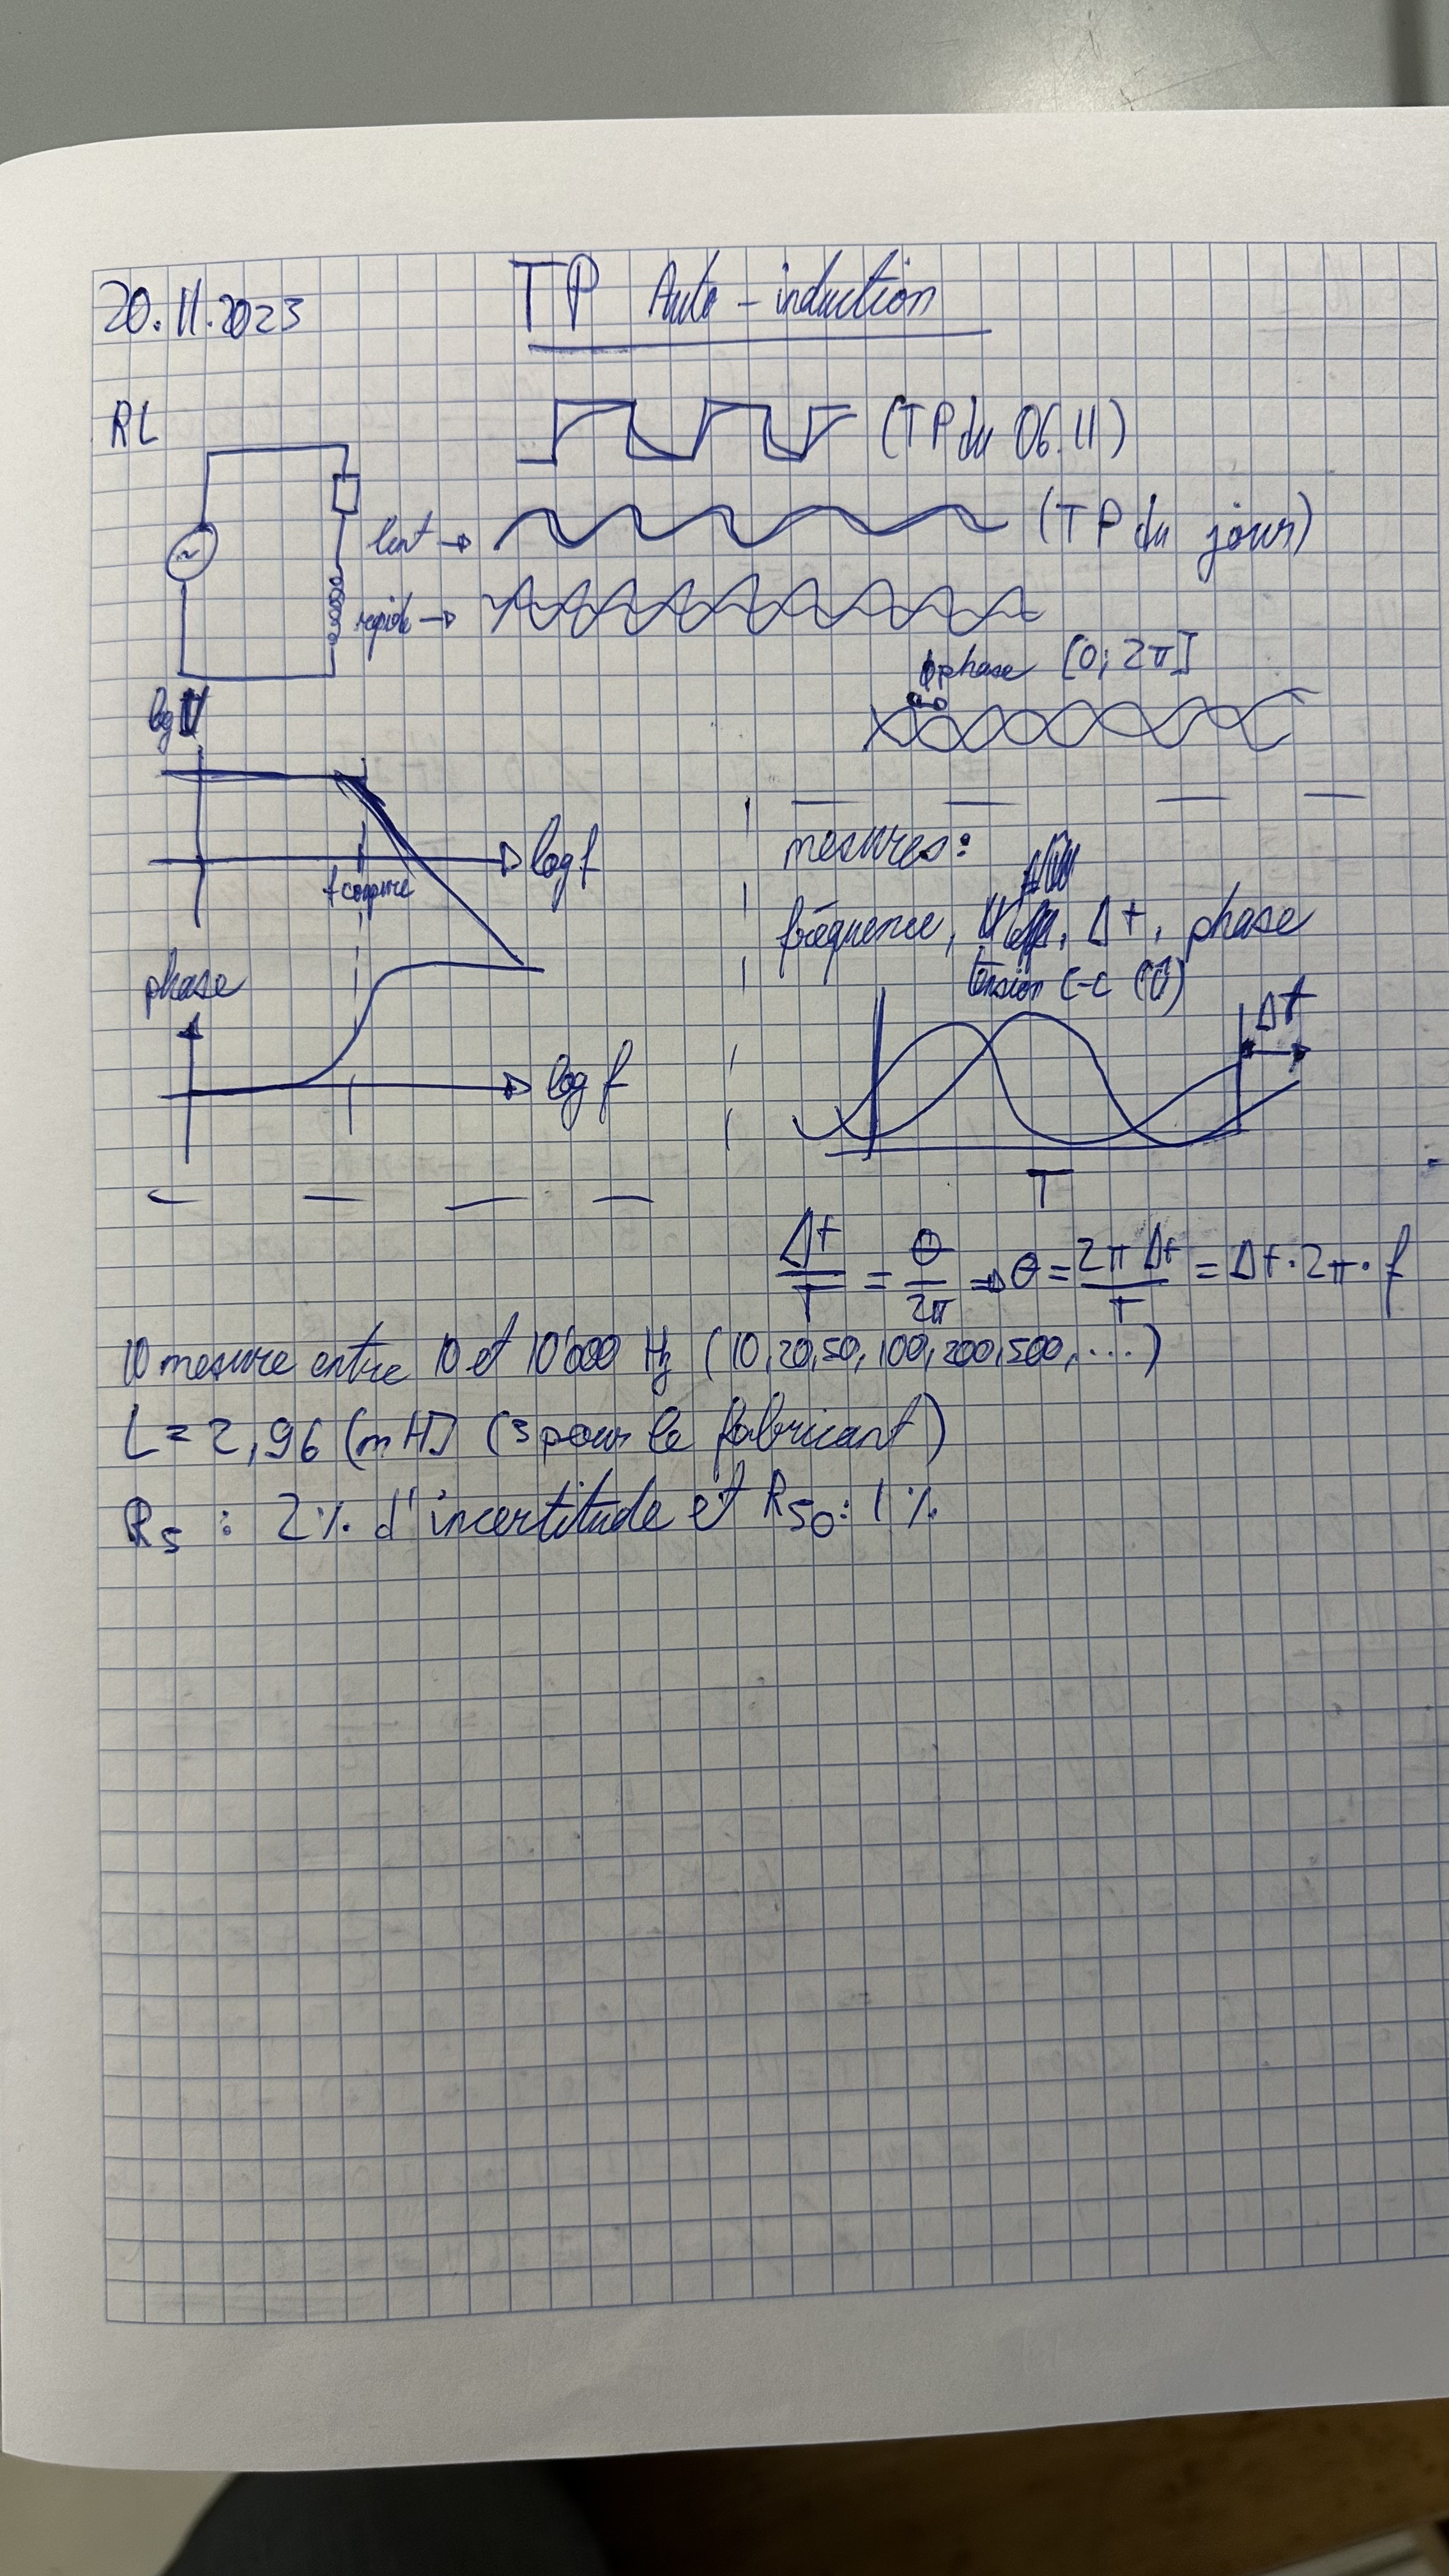 20.11.2023
TP Auto-induction
RL
(TP du 06.11)
lent →
(TP du jour)
rapide →
phase [0; 2π]
log U
log f
f coupure
phase
log f
mesures:
fréquence, Δt, phase
tension C-C (V)
Δt
T
Δt/T = θ/2π ⇒ θ = 2π Δt/T = Δt · 2π · f
10 mesure entre 10 et 10'000 Hz (10, 20, 50, 100, 200, 500, ...)
L = 2,96 [mH] (3 pour le fabricant)
R5 : 2% d'incertitude et R50 : 1%